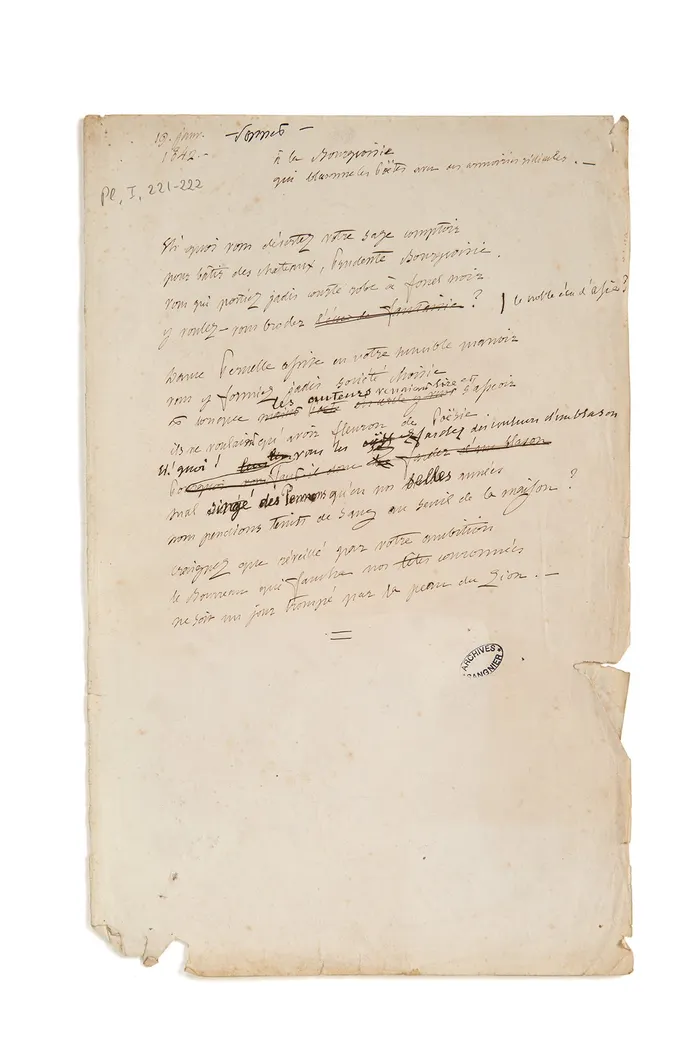 19. janv.
1842.-
- Sonnet -
à la Bourgeoisie
qui blasonne les Poëtes avec ses armoiries ridicules. -
Pl, I, 221-222
Eh quoi vous désertez votre sage comptoir
pour bâtir des châteaux, Prudente Bourgeoisie.
vous qui portiez jadis courte robe à fond noir
y voulez-vous broder ?
Dame Pernelle assise en votre humble manoir
vous y formiez jadis société choisie
les auteurs s'asseoir
ils ne voulaient qu'avoir fleuron de Poësie
Eh quoi ! vous les fardez des couleurs d'un blason
Pourquoi vous faut-il donc farder d'un blason
mal singé des Pennons qu'en nos belles années
nous pendions teints de sang au seuil de la maison ?
Craignez que réveillé par votre ambition
le Bourreau qui faucha nos têtes couronnées
ne soit un jour trompé par la peau du Lion. -
ARCHIVES
SANGNIER